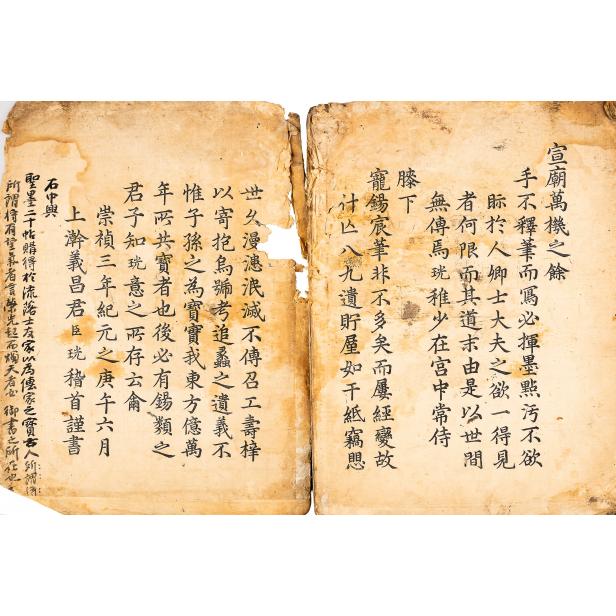 宣廟萬機之餘
手不釋筆而寫必揮墨點汚不欲
眎於人卿士大夫之欲一得見
者何限而其道末由是以世間
無傳焉珖稚少在宮中常侍
膝下
寵錫宸筆非不多矣而屢經變故
計亾八九遺貯屋如干紙竊愳
世久漫漶泯滅不傳召工壽梓
以寄抱烏號考追蠡之遺義不
惟子孫之為寶寶我東方億萬
年所共寶者也後必有錫類之
君子知珖意之所存云侖
崇禎三年紀元之庚午六月
上澣義昌君臣珖稽首謹書
石中與
聖墨二十帖賭得於流落士友家以為傳家之寶古人所謂
所謂待有望氣者言榮光起而燭天者必御書之所在也